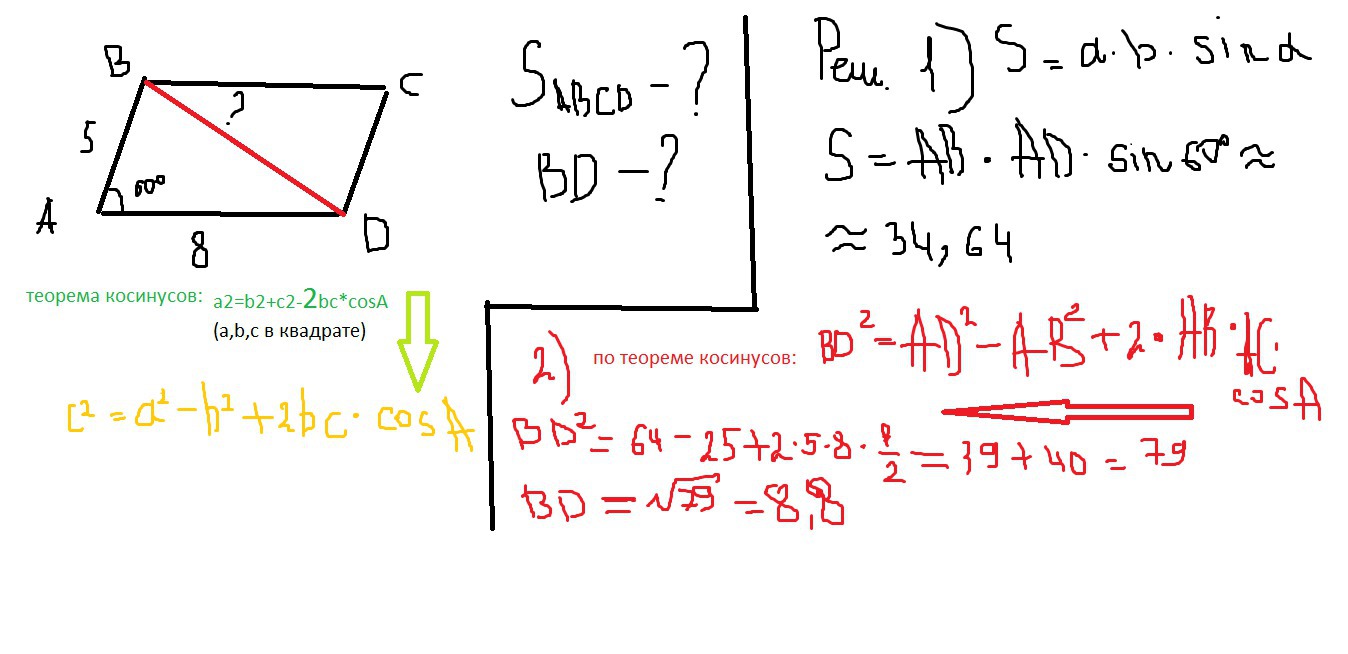 B
C
?
5
60°
A
8
D
S ABCD - ?
BD - ?
Реш. 1) S = a·b·sinα
S = AB · AD · sin 60° ≈
≈ 34,64
теорема косинусов: a2=b2+c2-2bc*cosA
(a,b,c в квадрате)
c² = a² - b² + 2bc · cosA
2) по теореме косинусов: BD² = AD² - AB² + 2 · AB · AC ·
cosA
BD² = 64 - 25 + 2·5·8 · 1/2 = 39 + 40 = 79
BD = √79 = 8,8